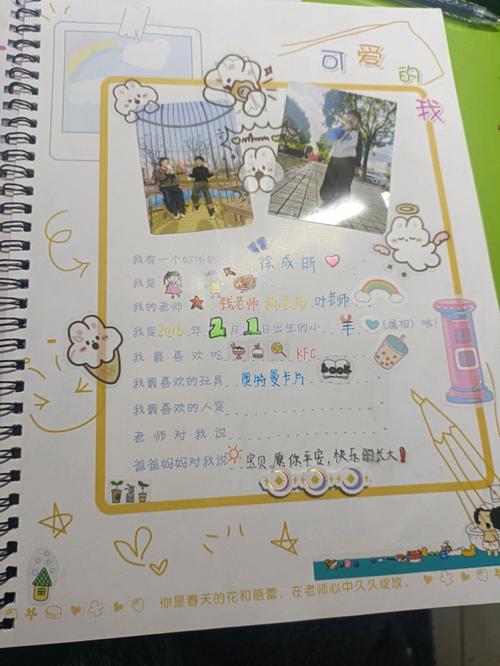 可爱的我
我有一个好听的 徐成昕
我是
我的老师 钱老师 陈老师 叶老师
我是2016年2月1日出生的小羊(属相)哦!
我最喜欢吃 KFC
我最喜欢的玩具 奥特曼卡片
book
我最喜欢的人是
老师对我说
爸爸妈妈对我说 宝贝愿你平安,快乐的长大!
你是春天的花和蓓蕾,在老师心中久久绽放。